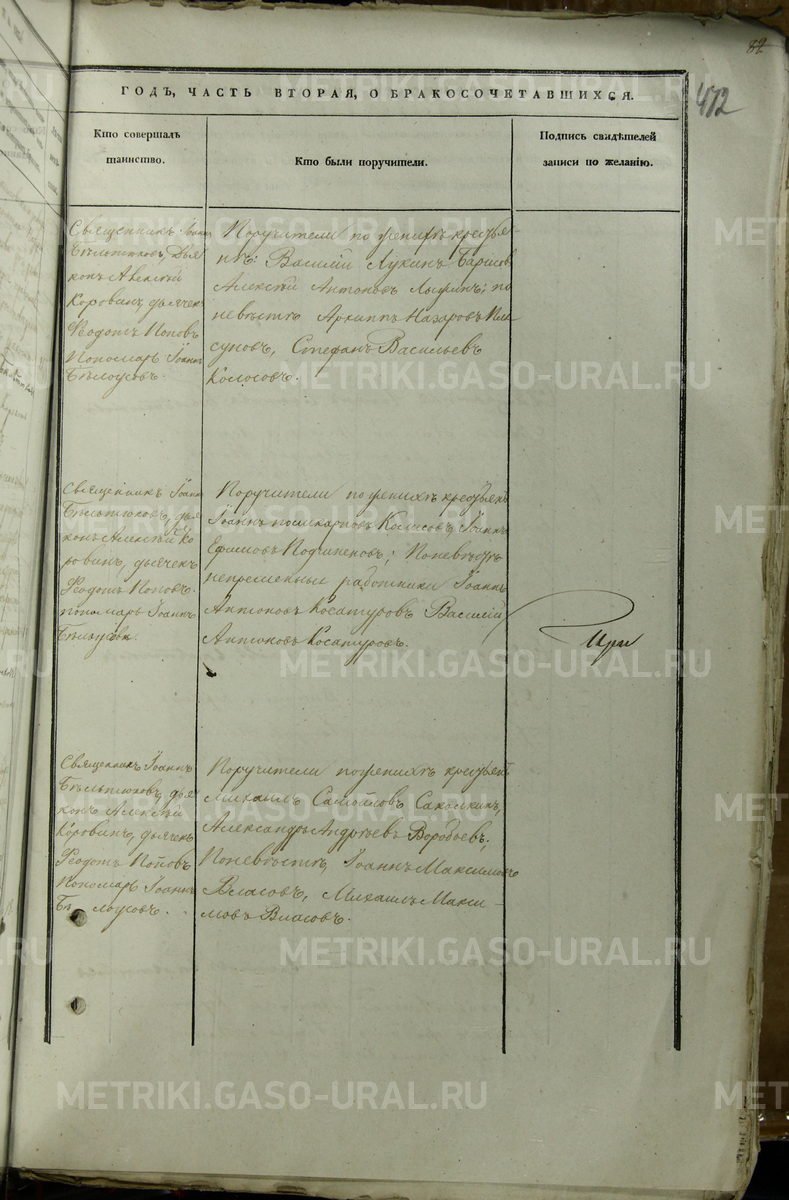 82
412
ГОДЪ, ЧАСТЬ ВТОРАЯ, О БРАКОСОЧЕТАВШИХСЯ.
Кто совершалъ
таинство.
Кто были поручители.
Подпись свидѣтелей
записи по желанію.
Священникъ Іоаннъ
Бѣльтюковъ, Дья
конъ Алексѣй
Коровинъ, дьячекъ
Ѳеодотъ Поповъ
Пономарь Іоаннъ
Бѣлоусовъ.
Поручители по женихѣ крестья-
нѣ: Василій Лукинъ
Алексѣй Антоновъ по
невѣстѣ Архиппъ Назаровъ Пле
суновъ, Стефанъ Васильевъ
Колосовъ.
Священникъ Іоаннъ
Бѣльтюковъ, дья
конъ Алексѣй Ко
ровинъ, дьячекъ
Ѳеодотъ Поповъ.
пономарь Іоаннъ
Бѣлоусовъ
Поручители по женихѣ крестьян
Іоаннъ Поликарповъ Колосовъ, Іоаннъ
Ефимовъ; По невѣстѣ
непременные работники Іоаннъ
Антоновъ Косатуровъ Василій
Антоновъ Косатуровъ.
Священникъ Іоаннъ
Бѣльтюковъ, дья
конъ Алексѣй
Коровинъ, дьячекъ
Ѳеодотъ Поповъ
Пономарь Іоаннъ
Бѣлоусовъ.
Поручители по женихѣ крестьян
Михаилъ Самойловъ Саколкинъ,
Александръ Андрѣевъ Воробьевъ;
По невѣстѣ, Іоаннъ Максимовъ
Власовъ, Михаилъ Макси-
мовъ Власовъ.
METRIKI.GASO-URAL.RU